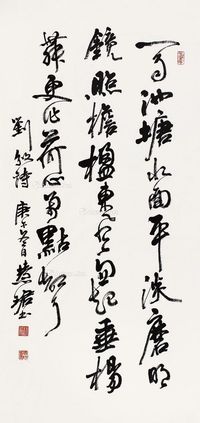 一雨池塘水面平淡磨明
鏡照檐楹東風忽起垂楊
舞更作荷心万點聲
劉攽詩 庚午 慧珺書